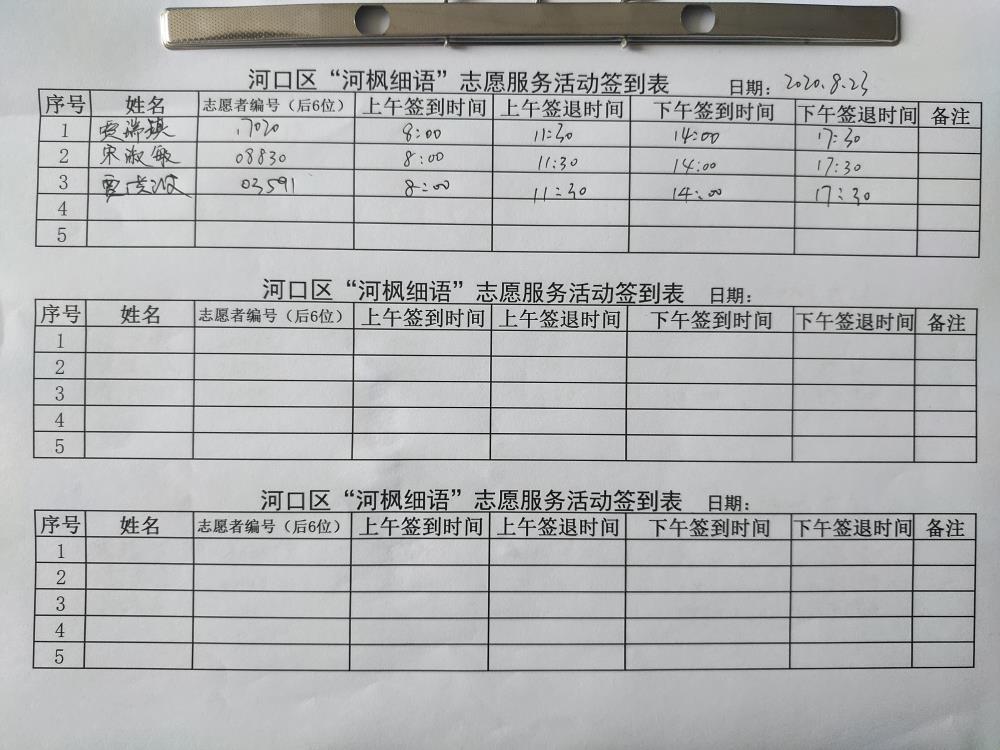 河口区“河枫细语”志愿服务活动签到表 日期：2020.8.23
序号 姓名 志愿者编号（后6位） 上午签到时间 上午签退时间 下午签到时间 下午签退时间 备注
1 贾瑞琪 17020 8:00 11:30 14:00 17:30
2 宋淑敏 08830 8:00 11:30 14:00 17:30
3 03591 8:00 11:30 14:00 17:30
4
5
河口区“河枫细语”志愿服务活动签到表 日期：
序号 姓名 志愿者编号（后6位） 上午签到时间 上午签退时间 下午签到时间 下午签退时间 备注
1
2
3
4
5
河口区“河枫细语”志愿服务活动签到表 日期：
序号 姓名 志愿者编号（后6位） 上午签到时间 上午签退时间 下午签到时间 下午签退时间 备注
1
2
3
4
5